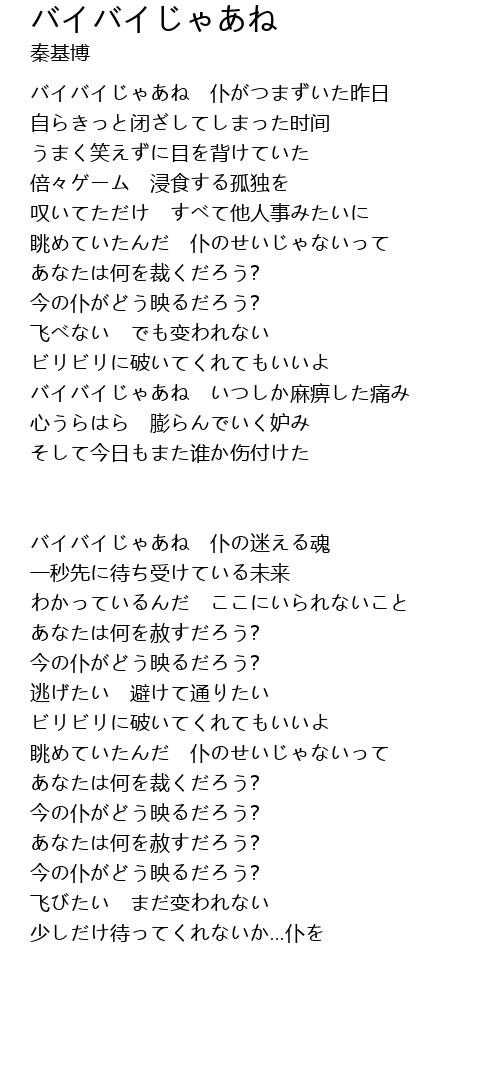 バイバイじゃあね
秦基博
バイバイじゃあね　仆がつまずいた昨日
自らきっと闭ざしてしまった时间
うまく笑えずに目を背けていた
倍々ゲーム　浸食する孤独を
叹いてただけ　すべて他人事みたいに
眺めていたんだ　仆のせいじゃないって
あなたは何を裁くだろう?
今の仆がどう映るだろう?
飞べない　でも変われない
ビリビリに破いてくれてもいいよ
バイバイじゃあね　いつしか麻痹した痛み
心うらはら　膨らんでいく妒み
そして今日もまた谁か伤付けた
バイバイじゃあね　仆の迷える魂
一秒先に待ち受けている未来
わかっているんだ　ここにいられないこと
あなたは何を赦すだろう?
今の仆がどう映るだろう?
逃げたい　避けて通りたい
ビリビリに破いてくれてもいいよ
眺めていたんだ　仆のせいじゃないって
あなたは何を裁くだろう?
今の仆がどう映るだろう?
あなたは何を赦すだろう?
今の仆がどう映るだろう?
飞びたい　まだ変われない
少しだけ待ってくれないか...仆を